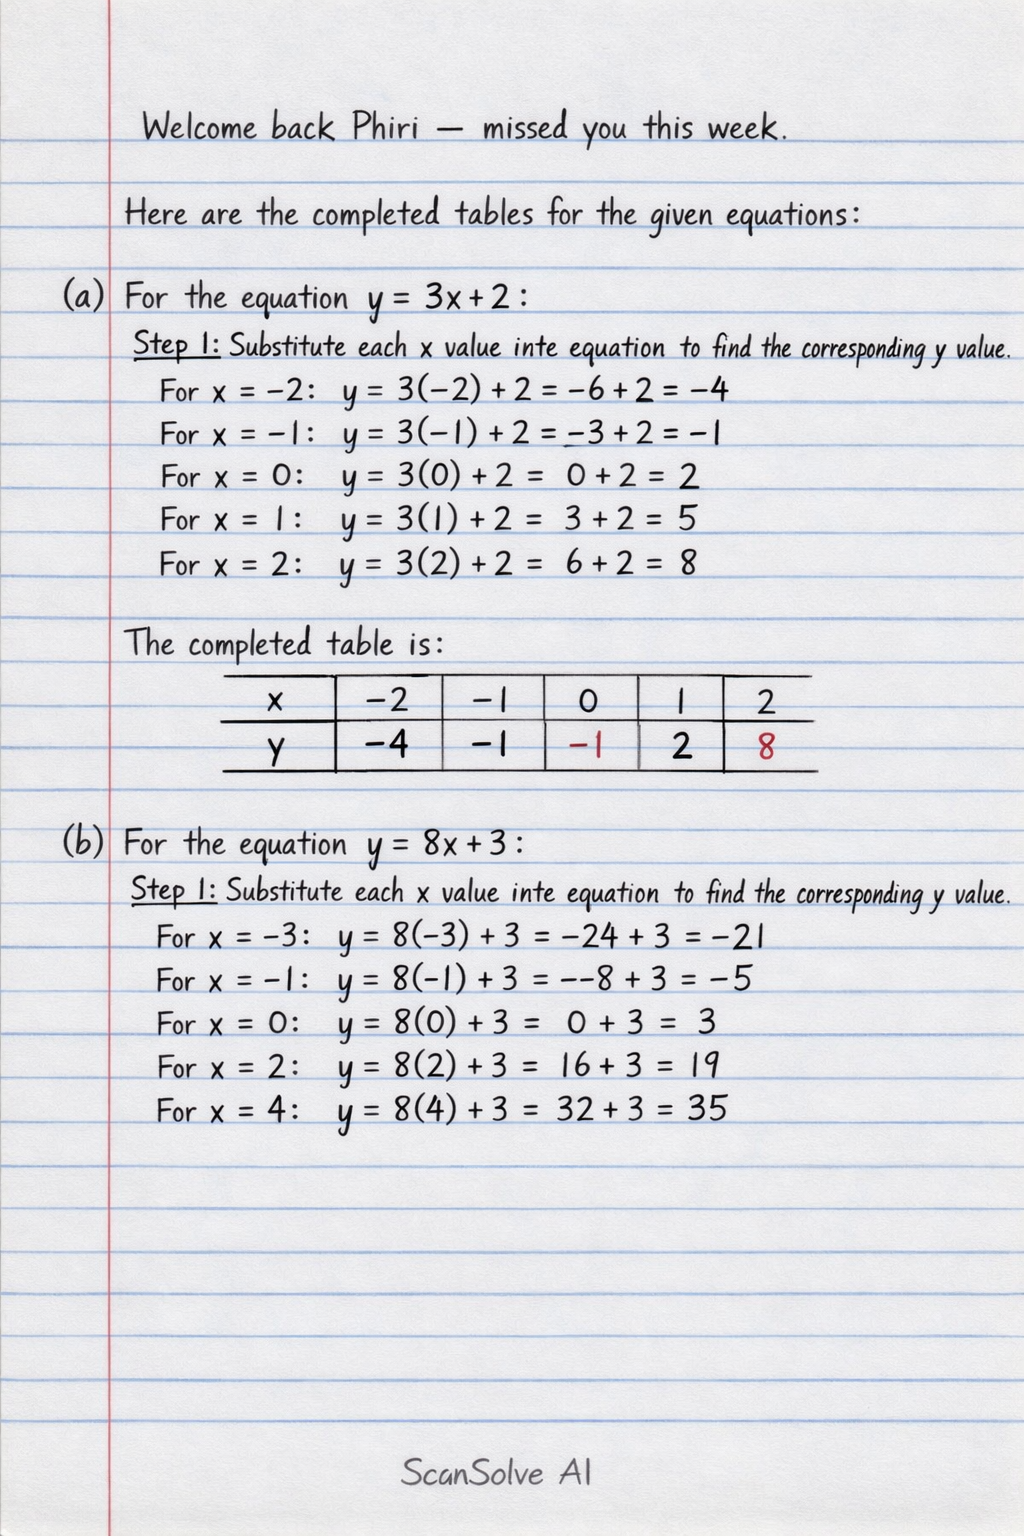 Welcome back Phiri — missed you this week.
Here are the completed tables for the given equations:
(a) For the equation y = 3x+2:
Step 1: Substitute each x value inte equation to find the corresponding y value.
For x = −2: y = 3(−2) + 2 = −6 + 2 = −4
For x = −1: y = 3(−1) + 2 = −3 + 2 = −1
For x = 0: y = 3(0) + 2 = 0 + 2 = 2
For x = 1: y = 3(1) + 2 = 3 + 2 = 5
For x = 2: y = 3(2) + 2 = 6 + 2 = 8
The completed table is:
x −2 −1 0 1 2
y −4 −1 −1 2 8
(b) For the equation y = 8x + 3:
Step 1: Substitute each x value inte equation to find the corresponding y value.
For x = −3: y = 8(−3) + 3 = −24 + 3 = −21
For x = −1: y = 8(−1) + 3 = −−8 + 3 = −5
For x = 0: y = 8(0) + 3 = 0 + 3 = 3
For x = 2: y = 8(2) + 3 = 16 + 3 = 19
For x = 4: y = 8(4) + 3 = 32 + 3 = 35
ScanSolve AI